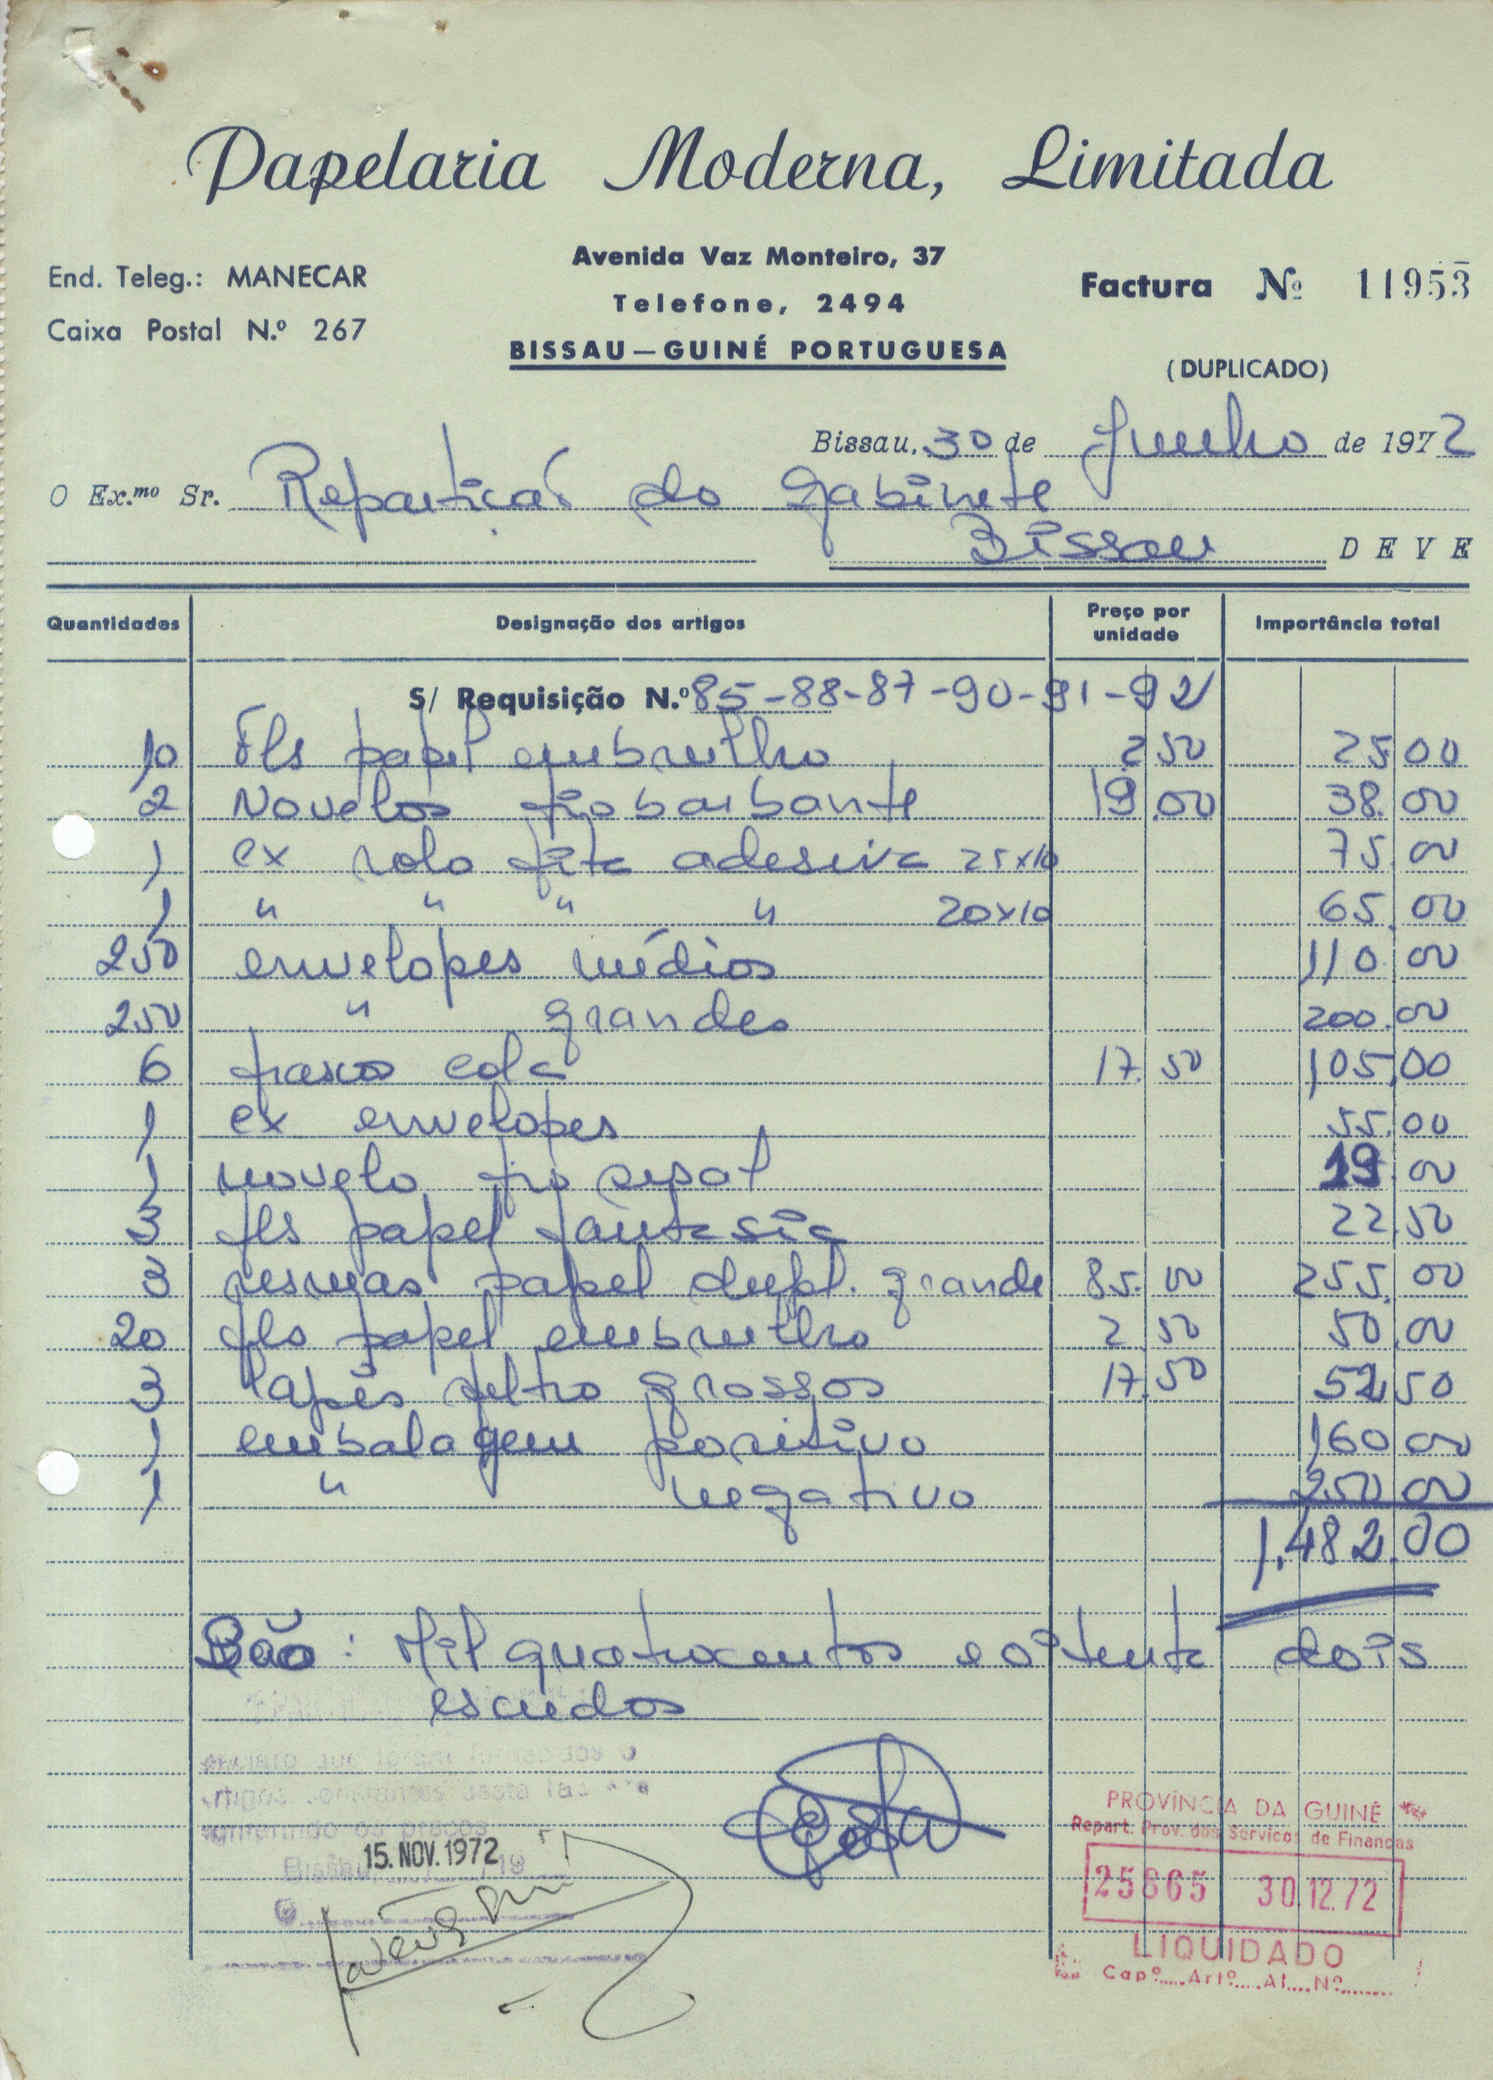 Papelaria Moderna, Limitada
End. Teleg.: MANECAR
Caixa Postal N.º 267
Avenida Vaz Monteiro, 37
Telefone, 2494
BISSAU—GUINÉ PORTUGUESA
Factura Nº 11953
(DUPLICADO)
Bissau, 30 de Junho de 1972
O Ex.mo Sr. Repartição do Gabinete
Bissau DEVE
Quantidades Designação dos artigos Preço por unidade Importância total
S/ Requisição N.º 85-88-87-90-91-92
10 Fls papel embrulho 2,50 25,00
2 Novelos fio barbante 19,00 38,00
1 cx rolo fita adesiva 25x10 75,00
1 " " " " 20x10 65,00
250 envelopes médios 110,00
250 " grandes 200,00
6 frascos cola 17,50 105,00
1 cx envelopes 55,00
1 novelo fio sisal 19,00
3 fls papel fantasia 22,50
3 resmas papel dupl. grande 85,00 255,00
20 fls papel embrulho 2,50 50,00
3 lapês feltro grossos 17,50 52,50
1 embalagem positivo 160,00
1 " negativo 250,00
1.482.00
São: Mil quatrocentos e oitenta dois
escudos
15. NOV. 1972
PROVÍNCIA DA GUINÉ
Repart. Prov. dos Serviços de Finanças
25665 30.12.72
LIQUIDADO
Capº.....Artº....Al....Nº........